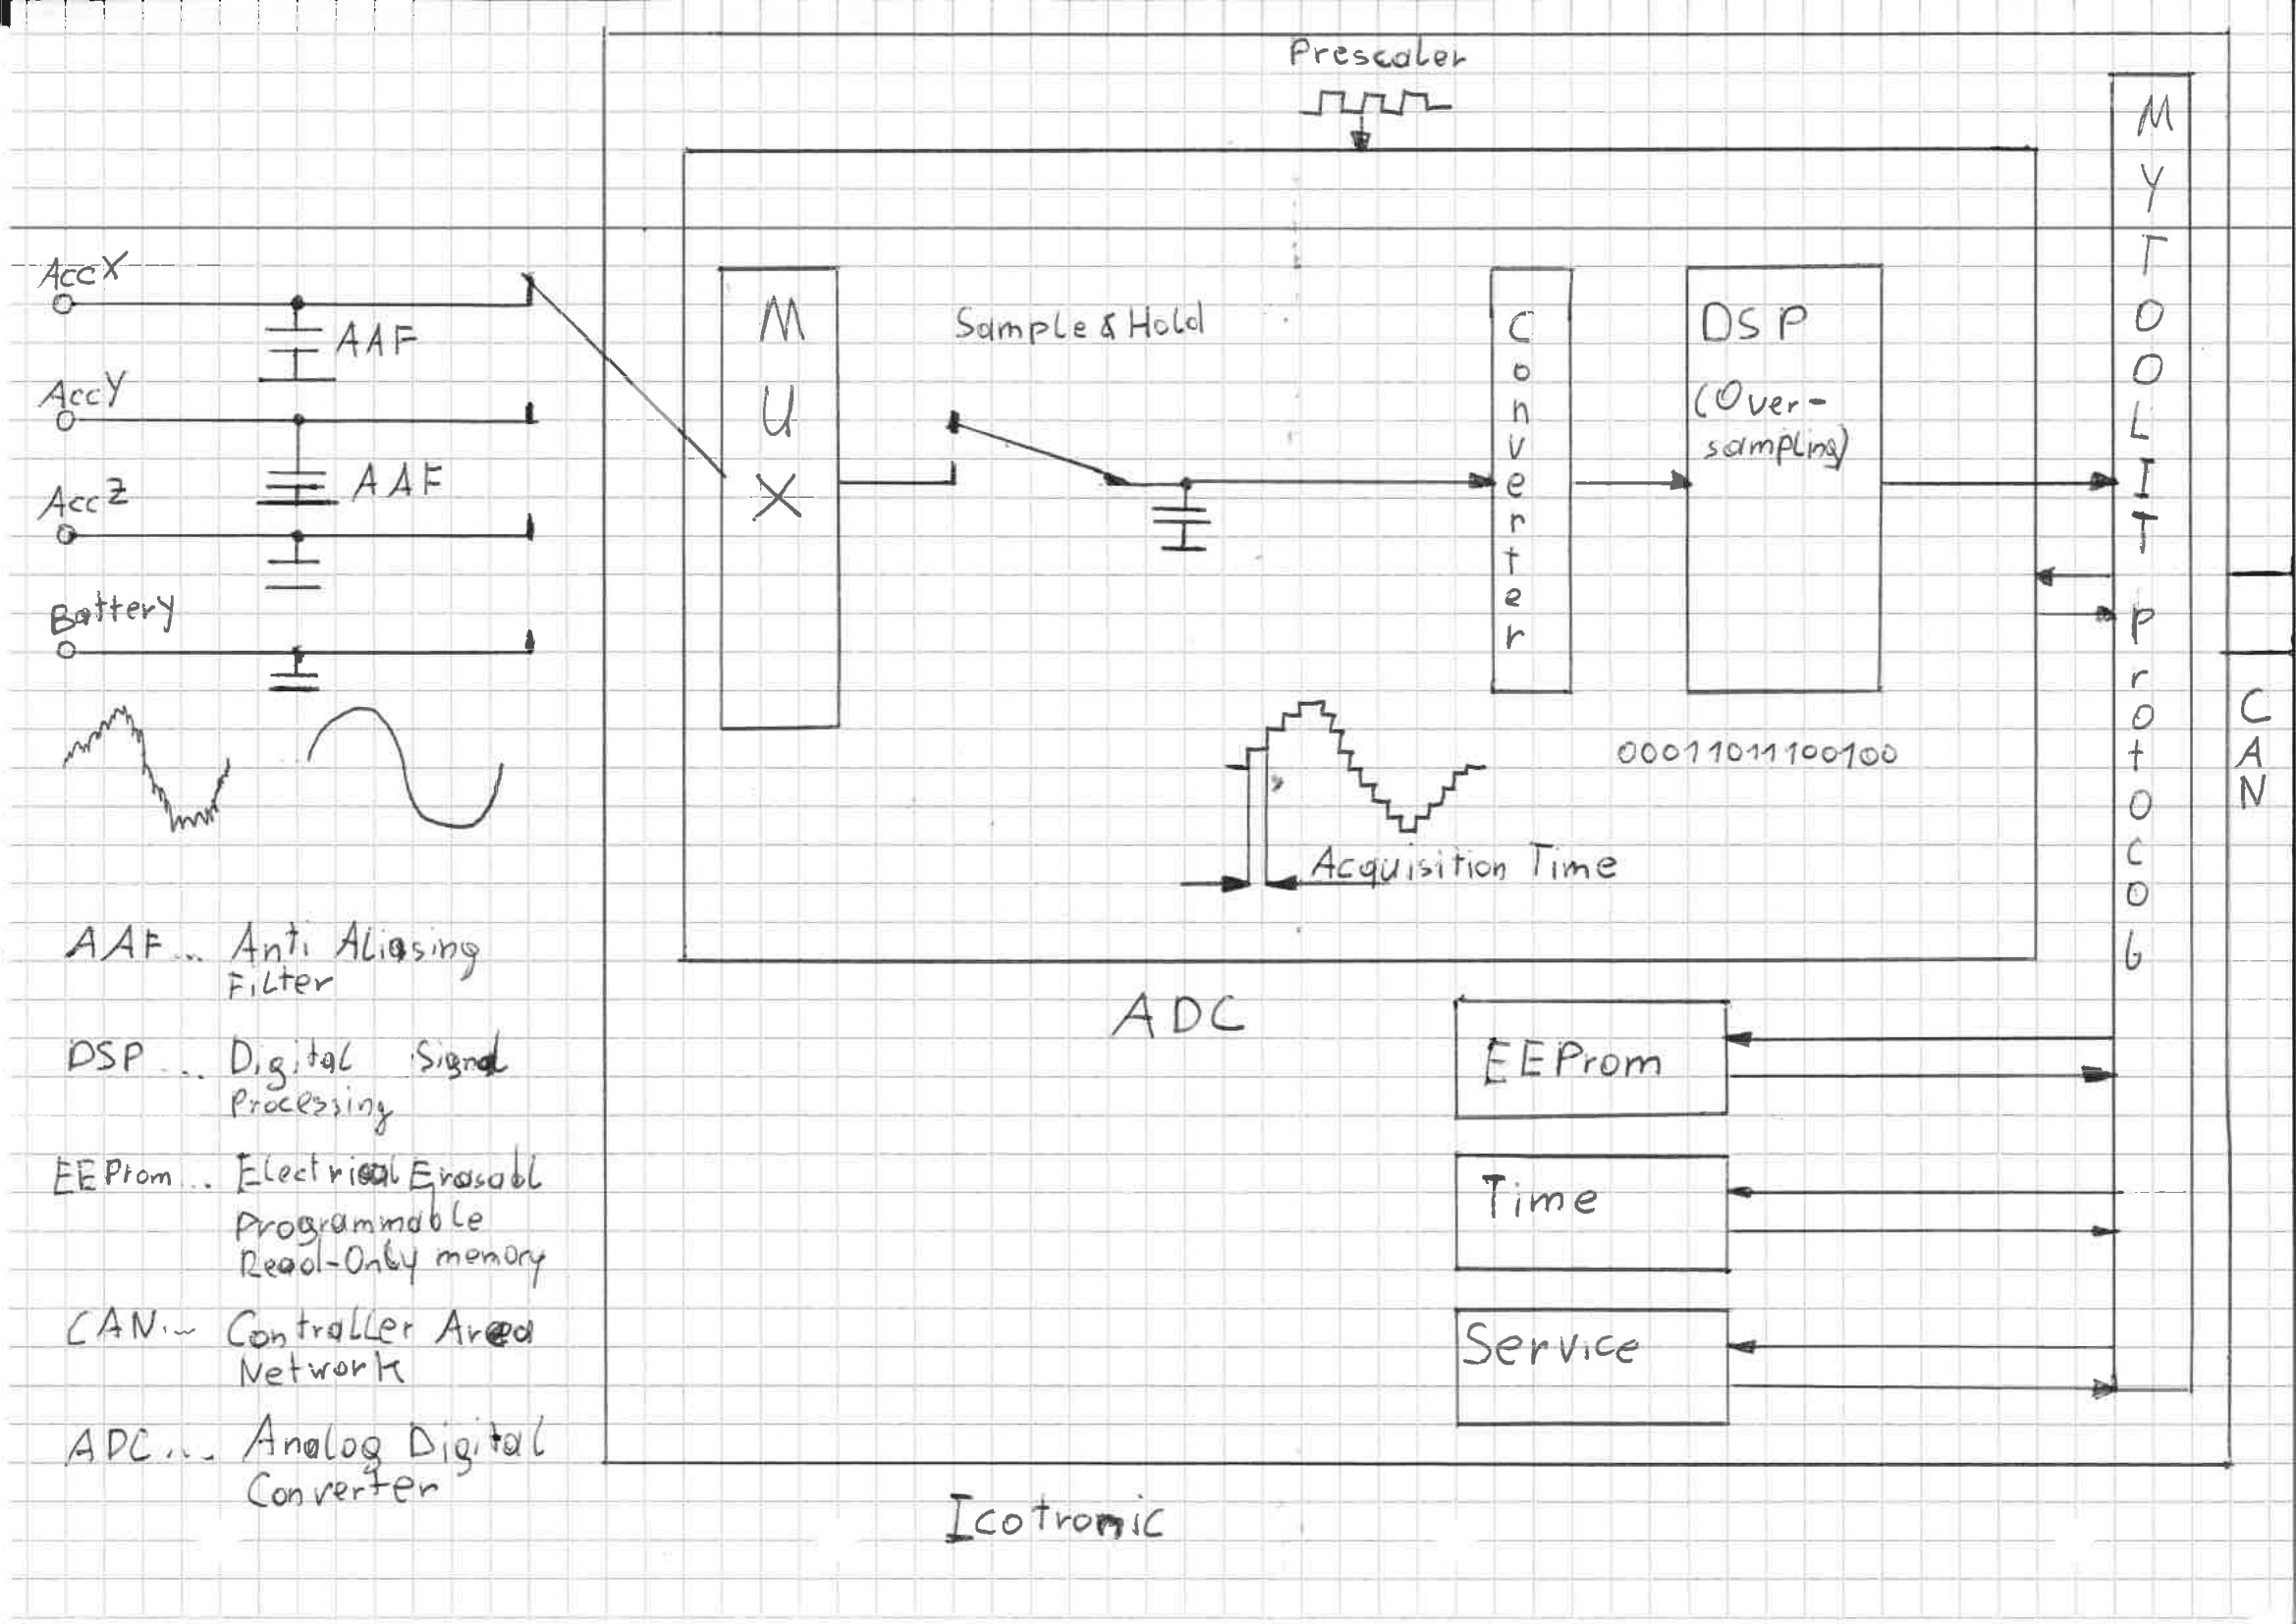 Prescaler
AccX
AAF
AccY
AAF
AccZ
Battery
MUX
Sample & Hold
Converter
DSP
(Over-
sampling)
00011011100100
Acquisition Time
MYTOOLIT Protocol
CAN
ADC
EEProm
Time
Service
AAF... Anti Aliasing
Filter
DSP ... Digital Signal
Processing
EEProm... Electrical Erasabl
Programmable
Read-Only memory
CAN... Controller Area
Network
ADC... Analog Digital
Converter
Icotronic